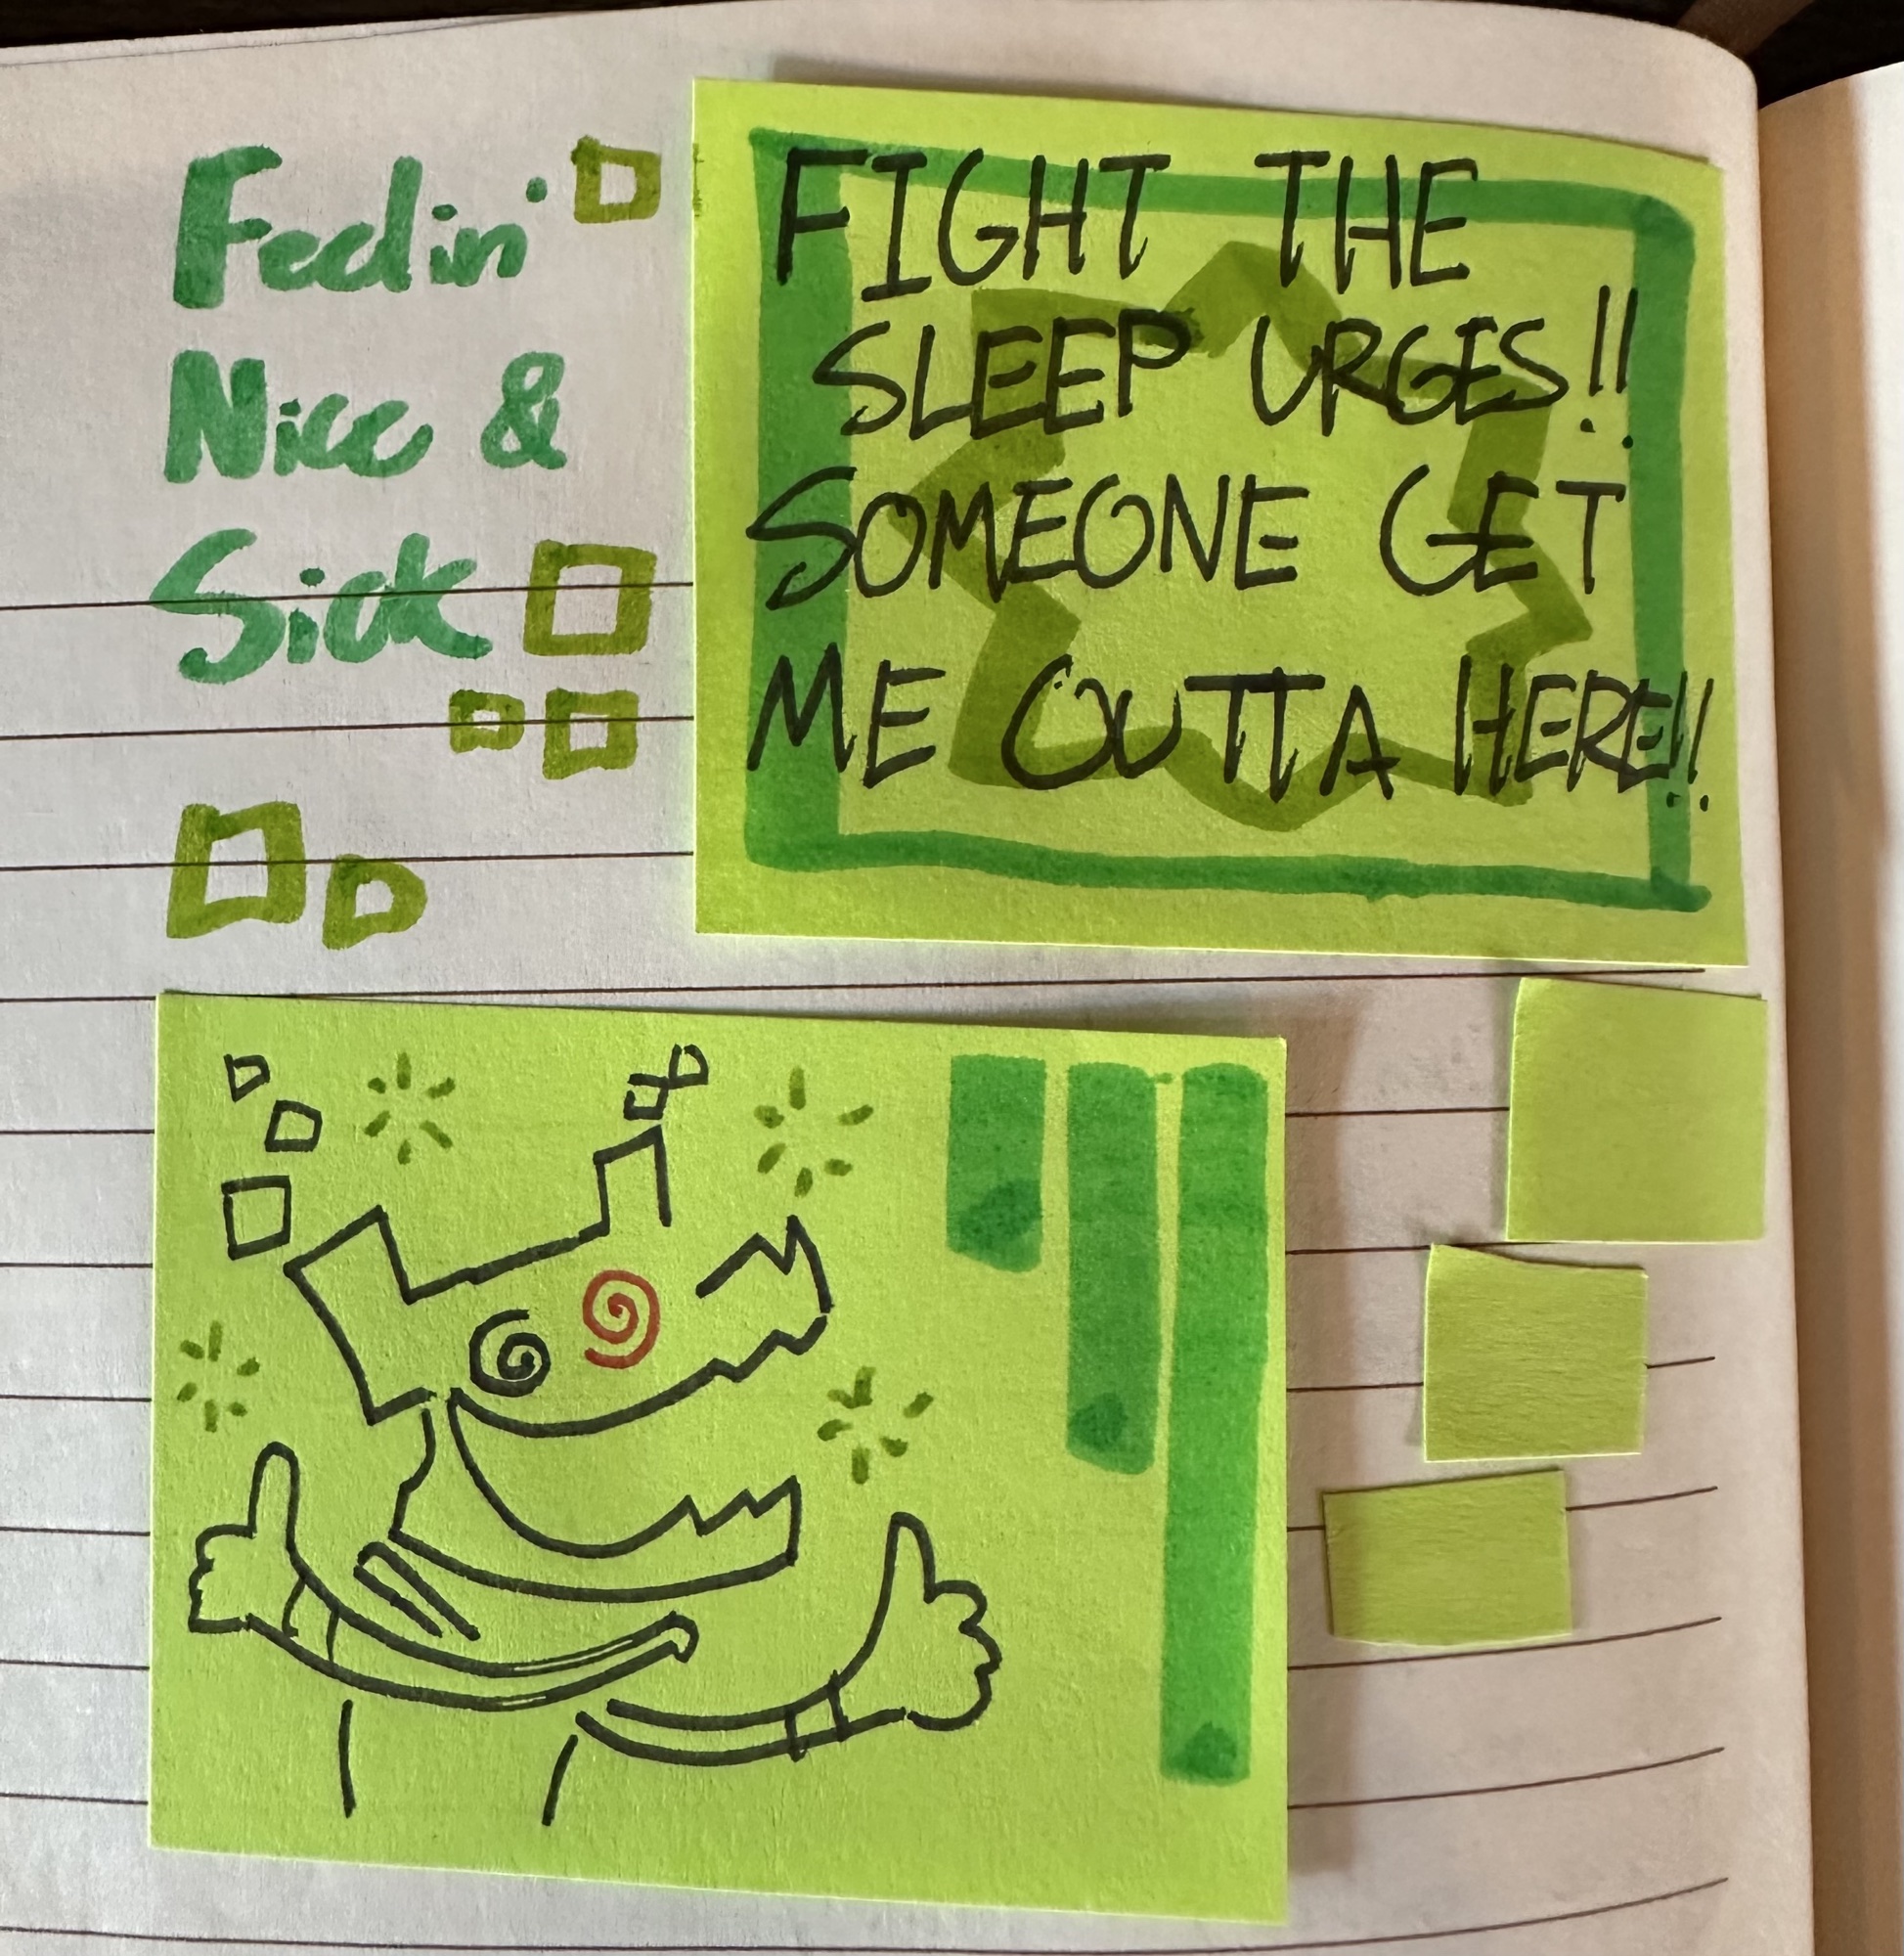 Feelin'
Nice &
Sick
FIGHT THE
SLEEP URGES!!
SOMEONE GET
ME OUTTA HERE!!